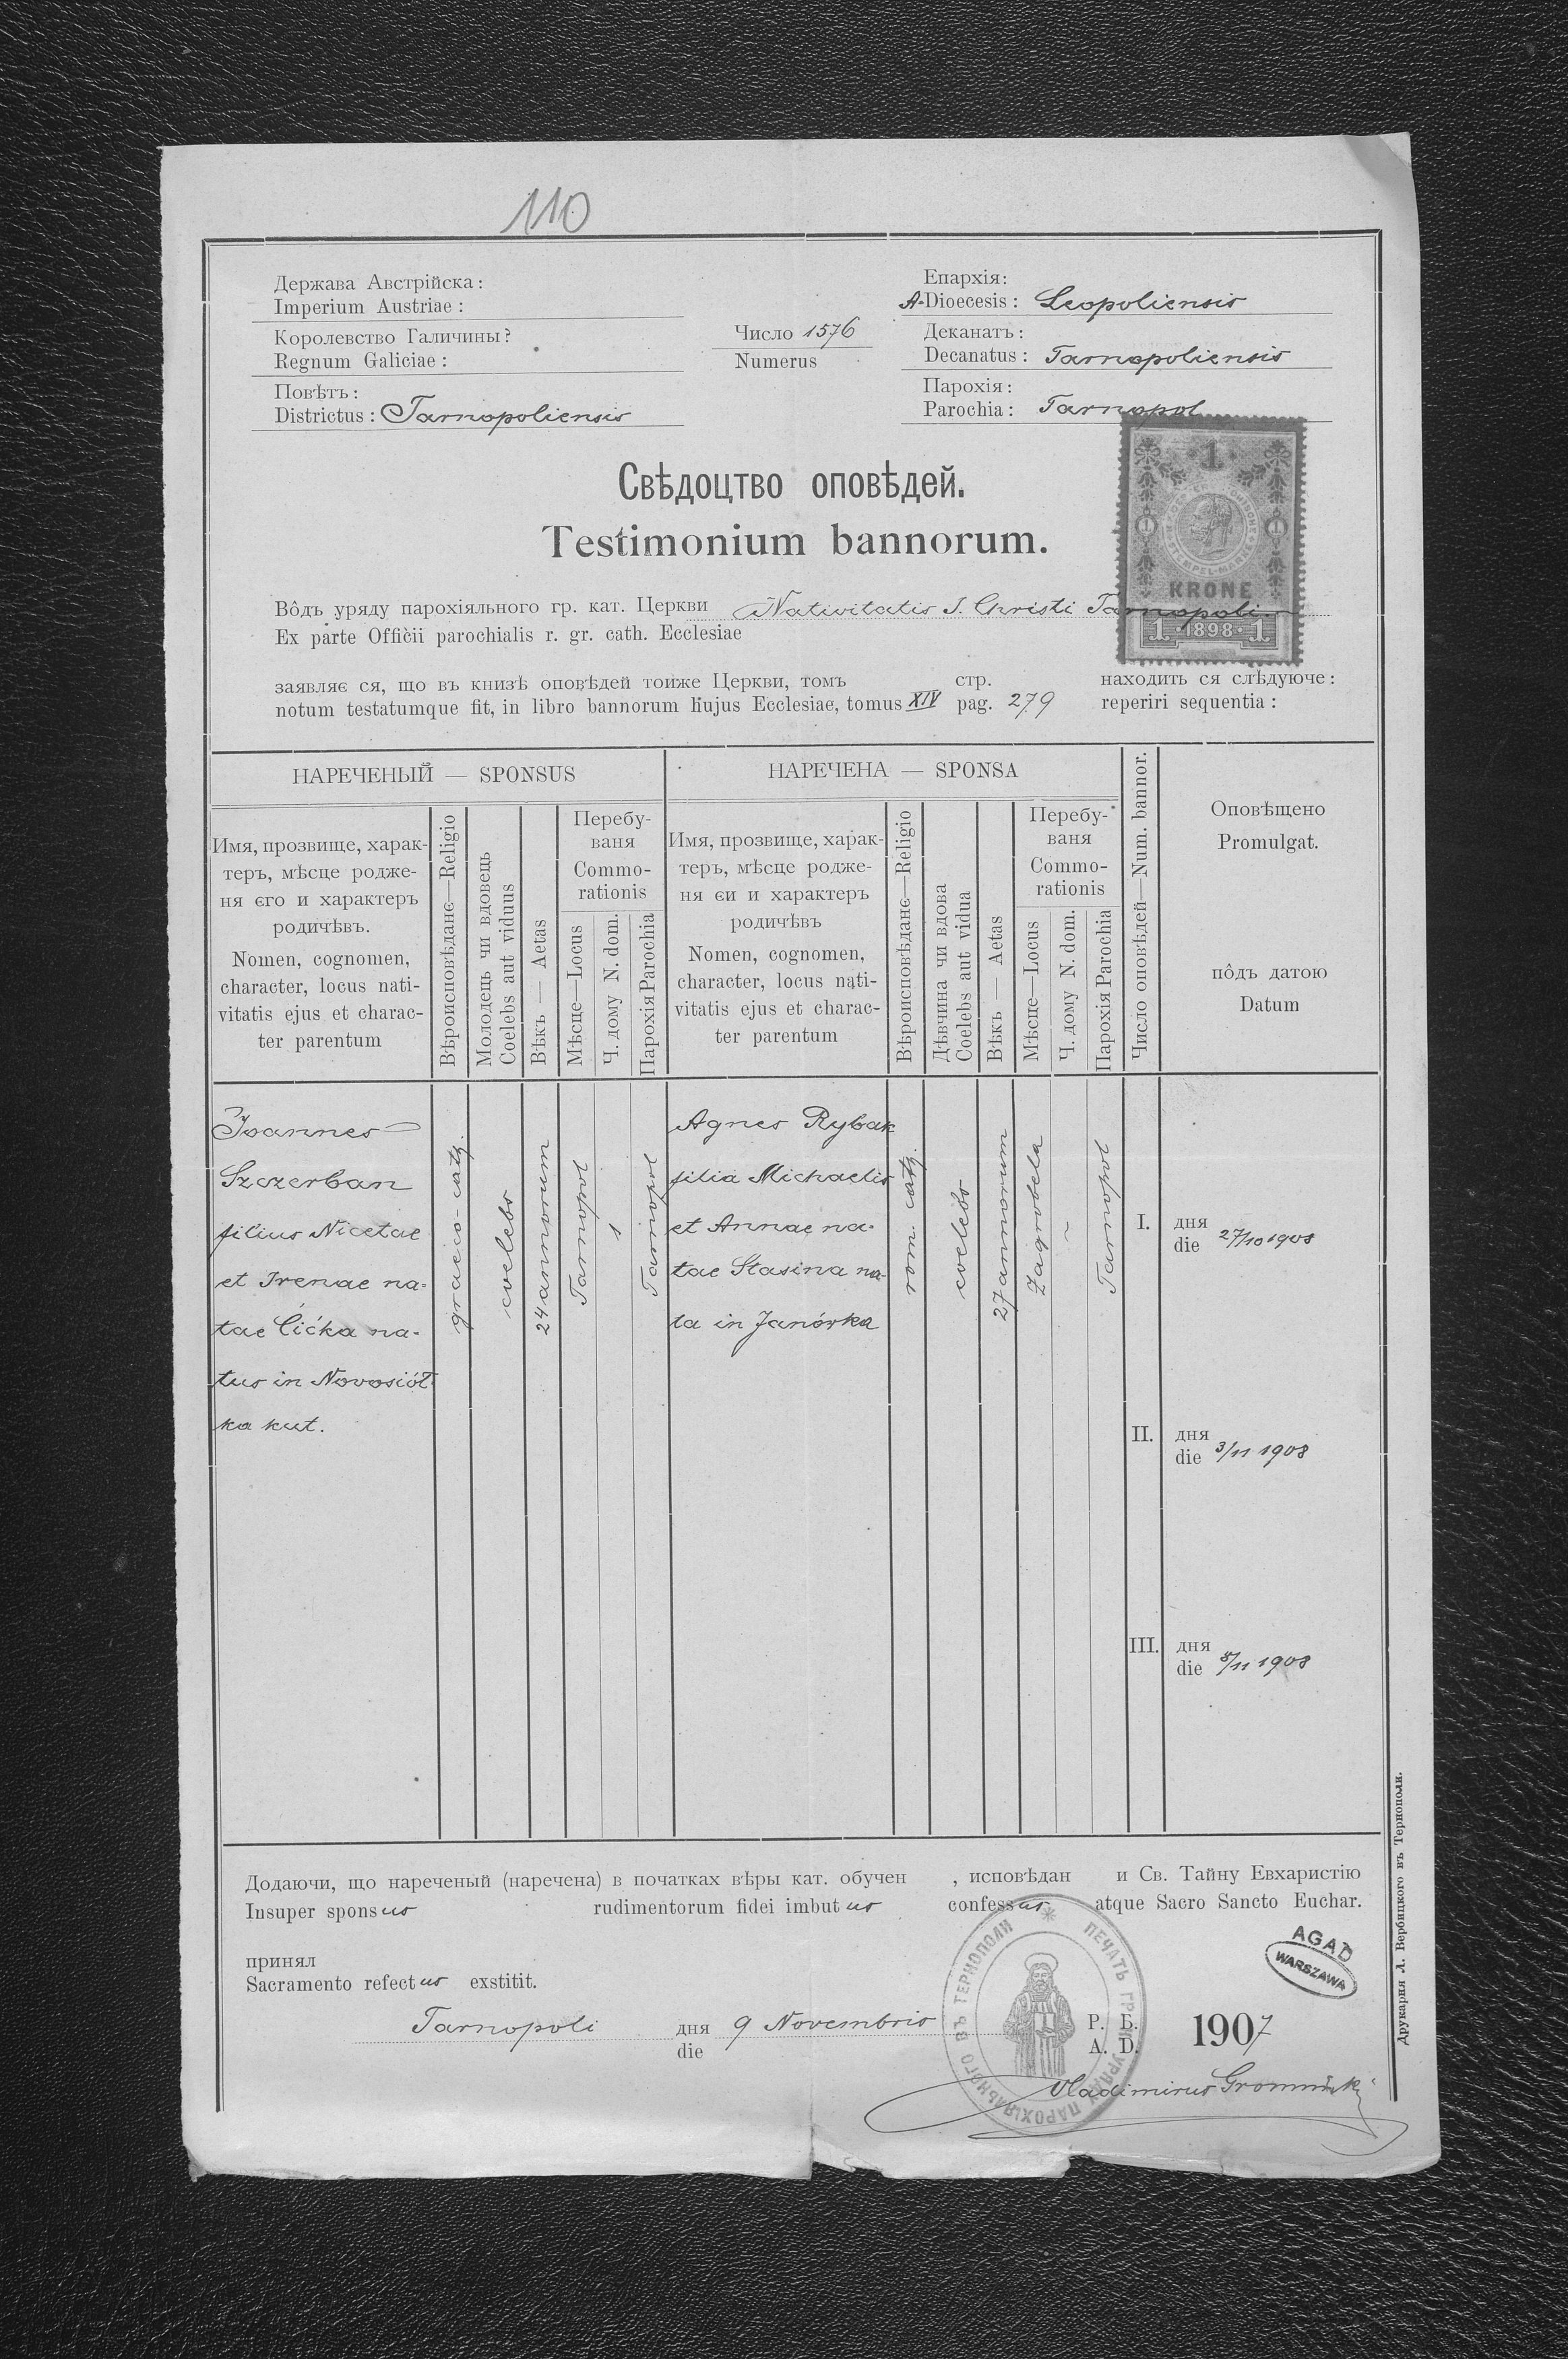 110
Держава Австрійска:
Imperium Austriae:
Королевство Галичины?
Regnum Galiciae:
Повѣтъ:
Districtus: Tarnopoliensis
Число 1576
Numerus
Епархія:
A-Dioecesis: Leopoliensis
Деканатъ:
Decanatus: Tarnopoliensis
Парохія:
Parochia: Tarnopol
1
STEMPEL-MARKE
KRONE
1 · 1898 · 1
Свѣдоцтво оповѣдей.
Testimonium bannorum.
Вôдъ уряду парохіяльного гр. кат. Церкви Nativitatis J. Christi Tarnopoli.
Ex parte Officii parochialis r. gr. cath. Ecclesiae
заявляє ся, що въ книзѣ оповѣдей тоиже Церкви, томъ стр. находить ся слѣдуюче:
notum testatumque fit, in libro bannorum hujus Ecclesiae, tomus XIV pag. 279 reperiri sequentia:
НАРЕЧЕНЫЙ — SPONSUS
Имя, прозвище, харак-
теръ, мѣсце родже-
ня єго и характеръ
родичѣвъ.
Nomen, cognomen,
character, locus nati-
vitatis ejus et charac-
ter parentum
Вѣроисповѣданє—Religio
Молодець чи вдовець
Coelebs aut viduus
Вѣкъ — Aetas
Перебу-
ваня
Commo-
rationis
Мѣсце—Locus
Ч. дому N. dom.
Парохія Parochia
НАРЕЧЕНА — SPONSA
Имя, прозвище, харак-
теръ, мѣсце родже-
ня єи и характеръ
родичѣвъ
Nomen, cognomen,
character, locus nati-
vitatis ejus et charac-
ter parentum
Вѣроисповѣданє—Religio
Дѣвчина чи вдова
Coelebs aut vidua
Вѣкъ — Aetas
Перебу-
ваня
Commo-
rationis
Мѣсце—Locus
Ч. дому N. dom.
Парохія Parochia
Число оповѣдей—Num. bannor.
Оповѣщено
Promulgat.
пôдъ датою
Datum
Joannes
Szczerban
filius Nicetae
et Irenae na-
tae Cićka na-
tus in Novosiół-
ka kut.
graeco-cath.
coelebs
24 annorum
Tarnopol
1
Tarnopol
Agnes Rybak
filia Michaelis
et Annae na-
tae Stasina na-
ta in Janówka
rom. cath.
coelebs
27 annorum
Zagrobela
~
Tarnopol
I. дня
die 27/10 1908
II. дня
die 3/11 1908
III. дня
die 8/11 1908
Додаючи, що нареченый (наречена) в початках вѣры кат. обучен , исповѣдан и Св. Тайну Евхаристію
Insuper sponsus rudimentorum fidei imbutus confessus atque Sacro Sancto Euchar.
принял
Sacramento refectus exstitit.
Tarnopoli дня 9 Novembris Р. Б. 1907
die A. D.
ПЕЧАТЬ ГР. УРЯДУ ПАРОХІЯЛЬНОГО ВЪ ТЕРНОПОЛИ
AGAD
WARSZAWA
Vladimirus Gromnicki
Друкарня Л. Вербицкого въ Тернополи.